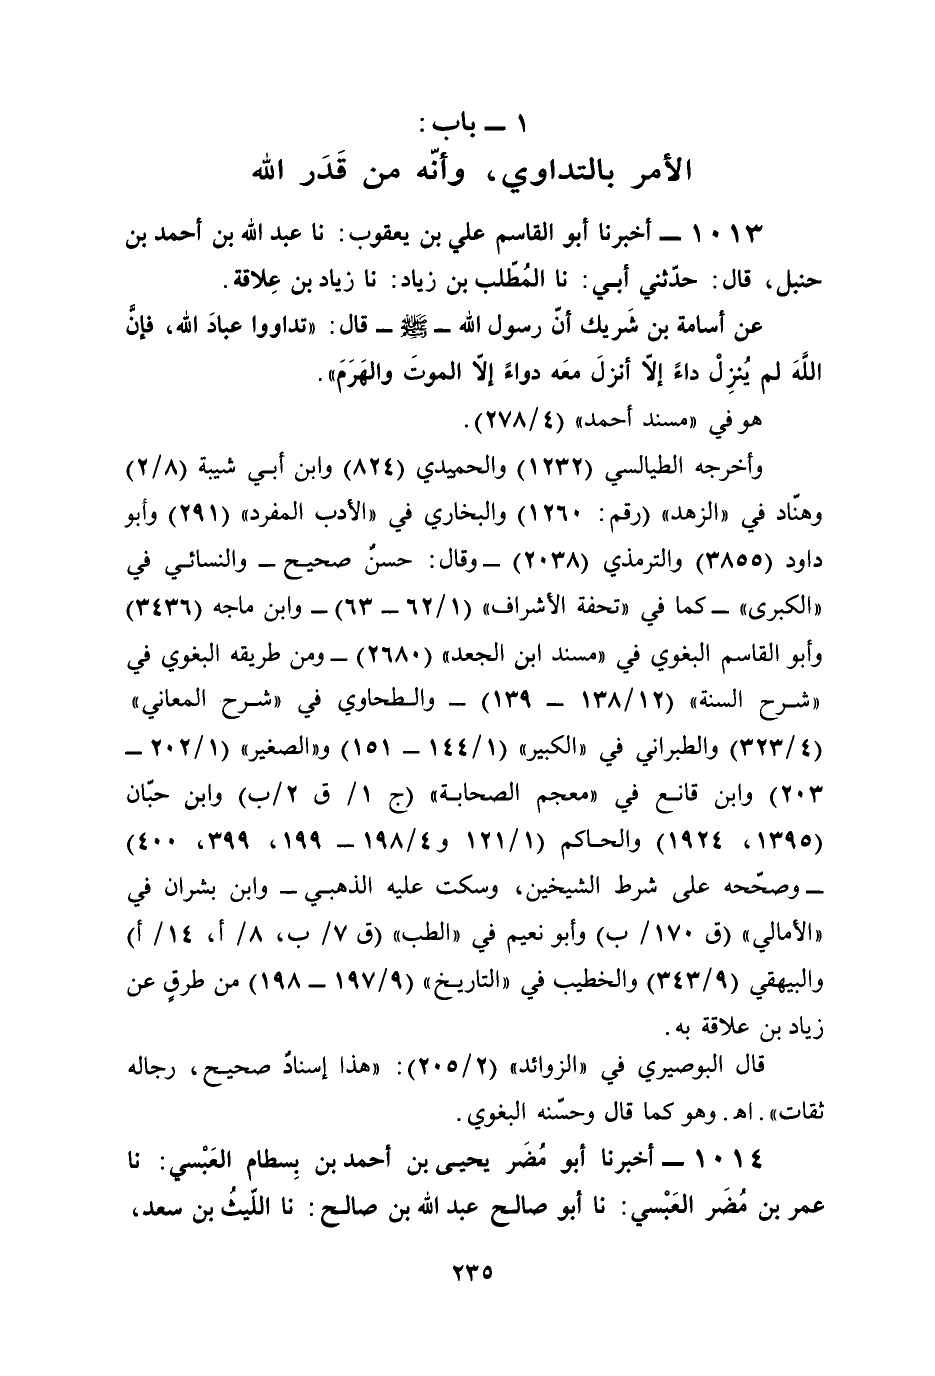 ١ ـ باب :
الأمر بالتداوي، وأنّه من قَدَر الله
١٠١٣ ـ أخبرنا أبو القاسم علي بن يعقوب: نا عبد الله بن أحمد بن
حنبل، قال: حدّثني أبي: نا المُطّلب بن زياد: نا زياد بن عِلاقة.
عن أسامة بن شَريك أنّ رسول الله ـ ﷺ ـ قال: «تداووا عبادَ الله، فإنَّ
اللَّهَ لم يُنزِلْ داءً إلاّ أنزلَ معَه دواءً إلاّ الموتَ والهَرَمَ».
هو في «مسند أحمد» (٢٧٨/٤).
وأخرجه الطيالسي (١٢٣٢) والحميدي (٨٢٤) وابن أبي شيبة (٢/٨)
وهنّاد في «الزهد» (رقم: ١٢٦٠) والبخاري في «الأدب المفرد» (٢٩١) وأبو
داود (٣٨٥٥) والترمذي (٢٠٣٨) ـ وقال: حسنٌ صحيح ـ والنسائي في
«الكبرى» ـ كما في «تحفة الأشراف» (٦٢/١ ـ ٦٣) ـ وابن ماجه (٣٤٣٦)
وأبو القاسم البغوي في «مسند ابن الجعد» (٢٦٨٠) ـ ومن طريقه البغوي في
«شرح السنة» (١٣٨/١٢ ـ ١٣٩) ـ والطحاوي في «شرح المعاني»
(٣٢٣/٤) والطبراني في «الكبير» (١٤٤/١ ـ ١٥١) و«الصغير» (٢٠٢/١ ـ
٢٠٣) وابن قانع في «معجم الصحابة» (ج ١/ ق ٢/ب) وابن حبّان
(١٣٩٥، ١٩٢٤) والحاكم (١٢١/١ و١٩٨/٤ ـ ١٩٩، ٣٩٩، ٤٠٠)
ـ وصحّحه على شرط الشيخين، وسكت عليه الذهبي ـ وابن بشران في
«الأمالي» (ق ١٧٠/ ب) وأبو نعيم في «الطب» (ق ٧/ ب، ٨/ أ، ١٤/ أ)
والبيهقي (٣٤٣/٩) والخطيب في «التاريخ» (١٩٧/٩ ـ ١٩٨) من طرقٍ عن
زياد بن علاقة به.
قال البوصيري في «الزوائد» (٢٠٥/٢): «هذا إسنادٌ صحيح، رجاله
ثقات». اهـ. وهو كما قال وحسّنه البغوي.
١٠١٤ ـ أخبرنا أبو مُضَر يحيى بن أحمد بن بِسطام العَبْسي: نا
عمر بن مُضَر العَبْسي: نا أبو صالح عبد الله بن صالح: نا اللّيثُ بن سعد،
٢٣٥